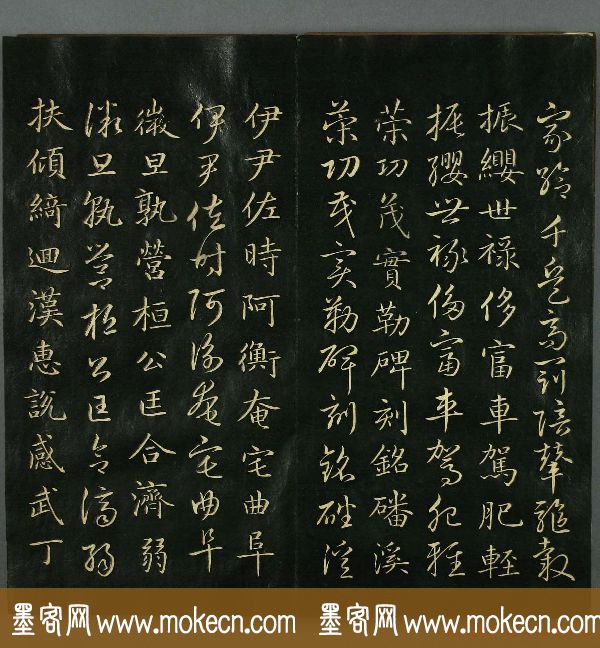 家給千兵高冠陪輦驅轂
振纓世禄侈富車駕肥輕
振纓世禄侈富車駕肥輕
策功茂實勒碑刻銘磻溪
策功茂實勒碑刻銘磻溪
伊尹佐時阿衡奄宅曲阜
伊尹佐時阿衡奄宅曲阜
微旦孰營桓公匡合濟弱
微旦孰營桓公匡合濟弱
扶傾綺迴漢惠説感武丁
墨客网 www.mokecn.com 墨客网 www.mokecn.com